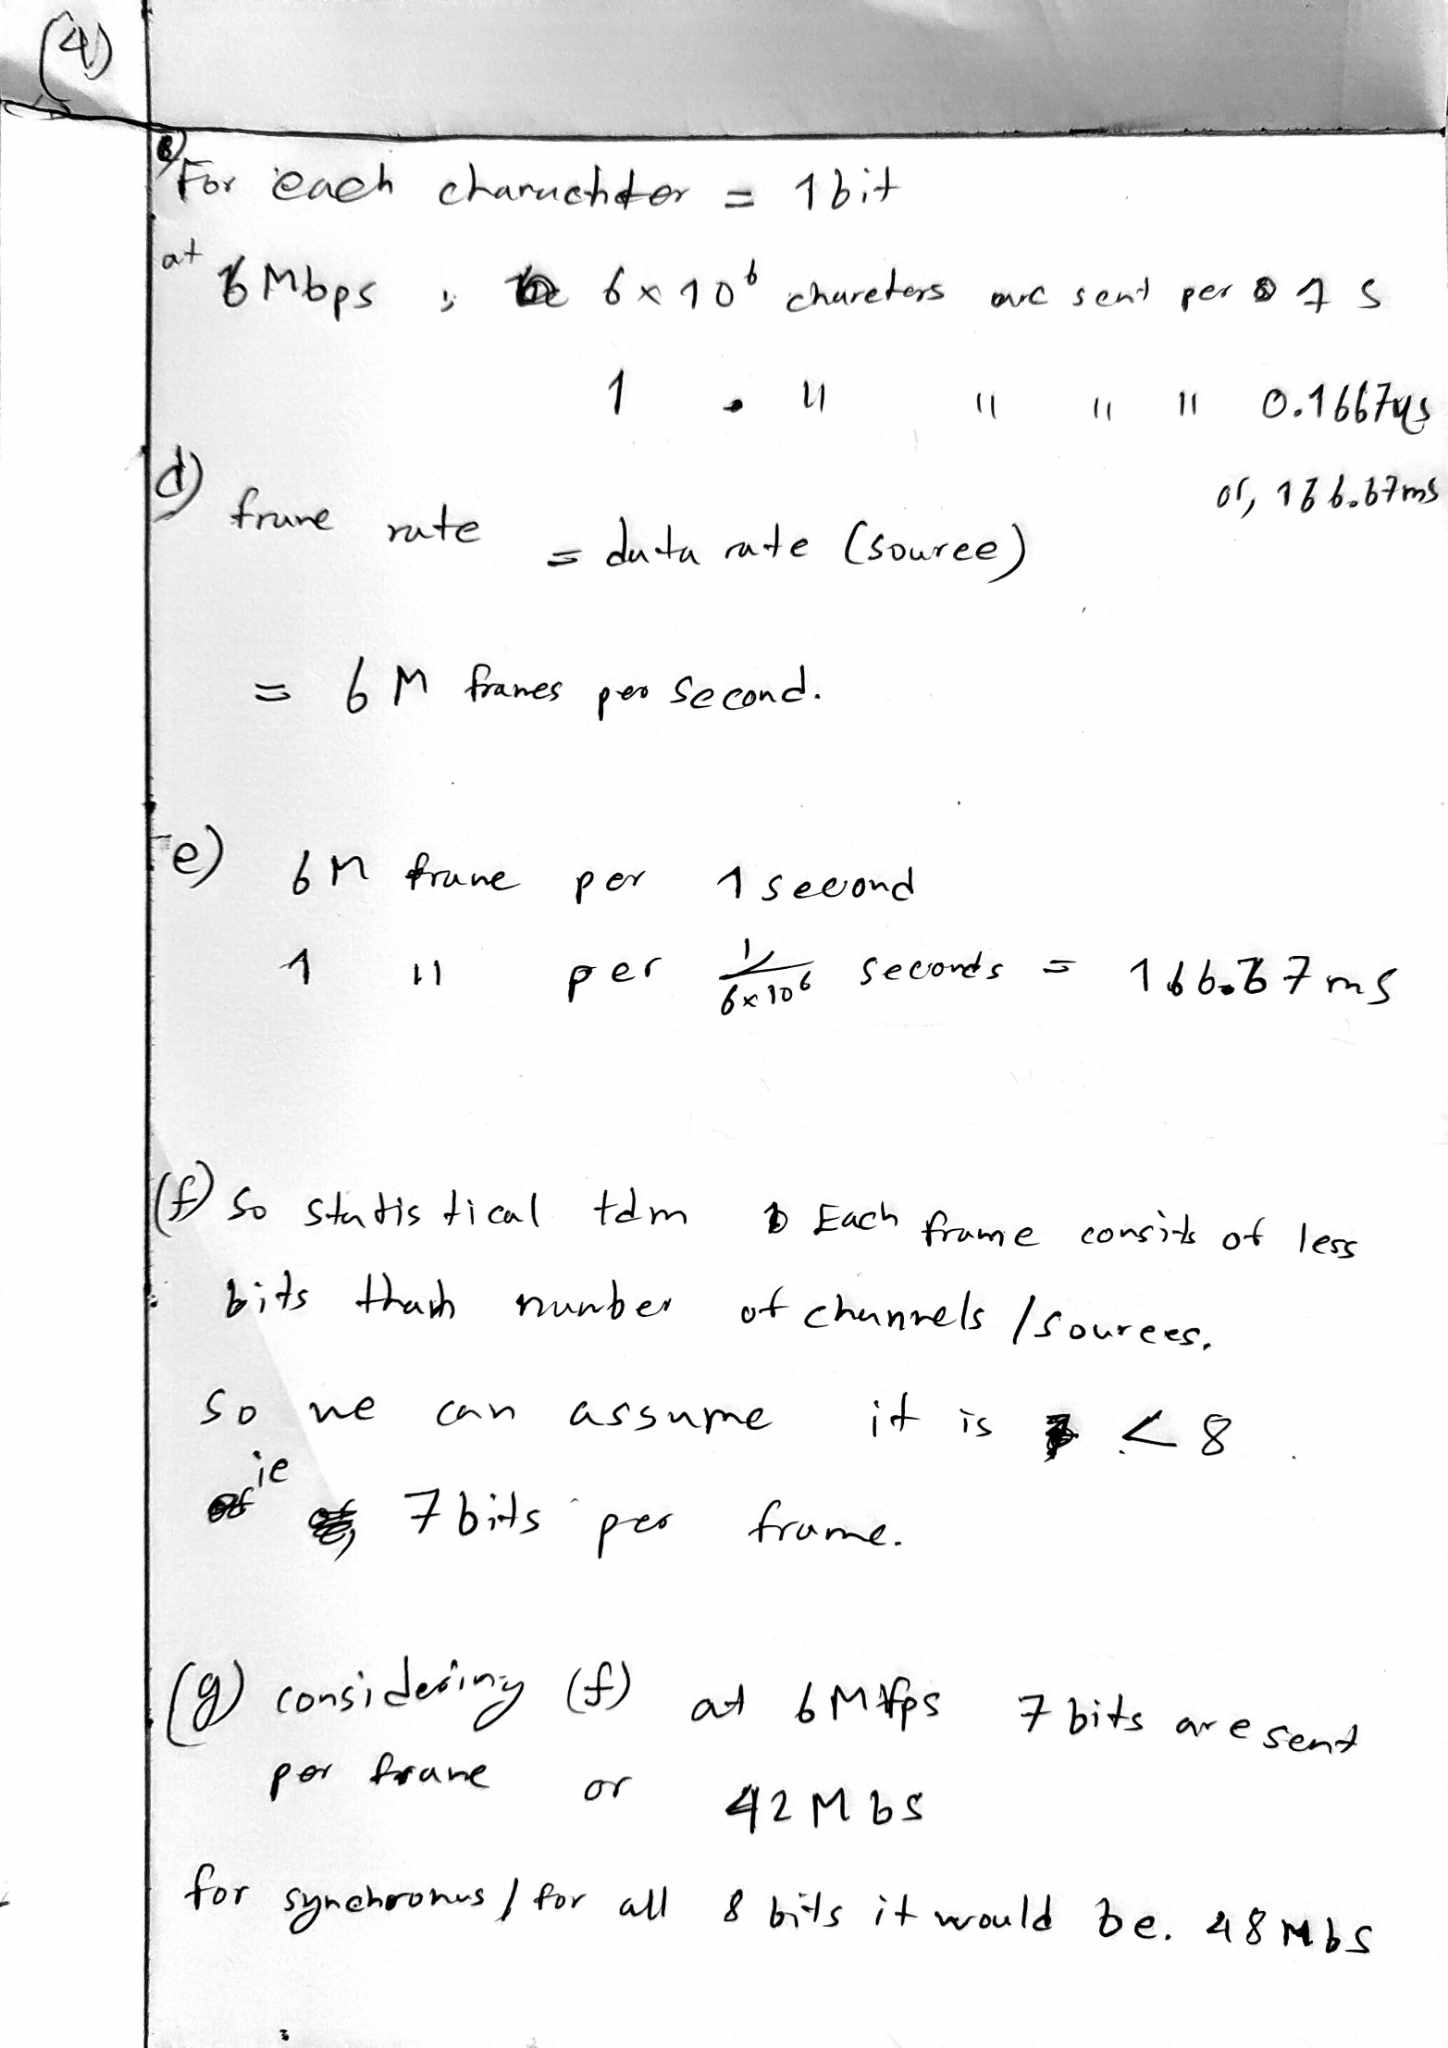 (4)
For each charachter = 1 bit
at 6 Mbps ; 6 × 10⁶ chareters are sent per 1 s
1 " " " " 0.1667 μs
or, 166.67 ms
d) frame rate = data rate (source)
= 6 M frames per second.
e) 6 M frame per 1 second
1 " per 1/6×10⁶ seconds = 166.67 ms
(f) So statistical tdm Each frame consits of less
bits than number of channels / sources.
So we can assume it is < 8
ie 7 bits per frame.
(g) considering (f) at 6 Mfps 7 bits are sent
per frame or 42 Mbs
for synchronus / for all 8 bits it would be. 48 Mbs